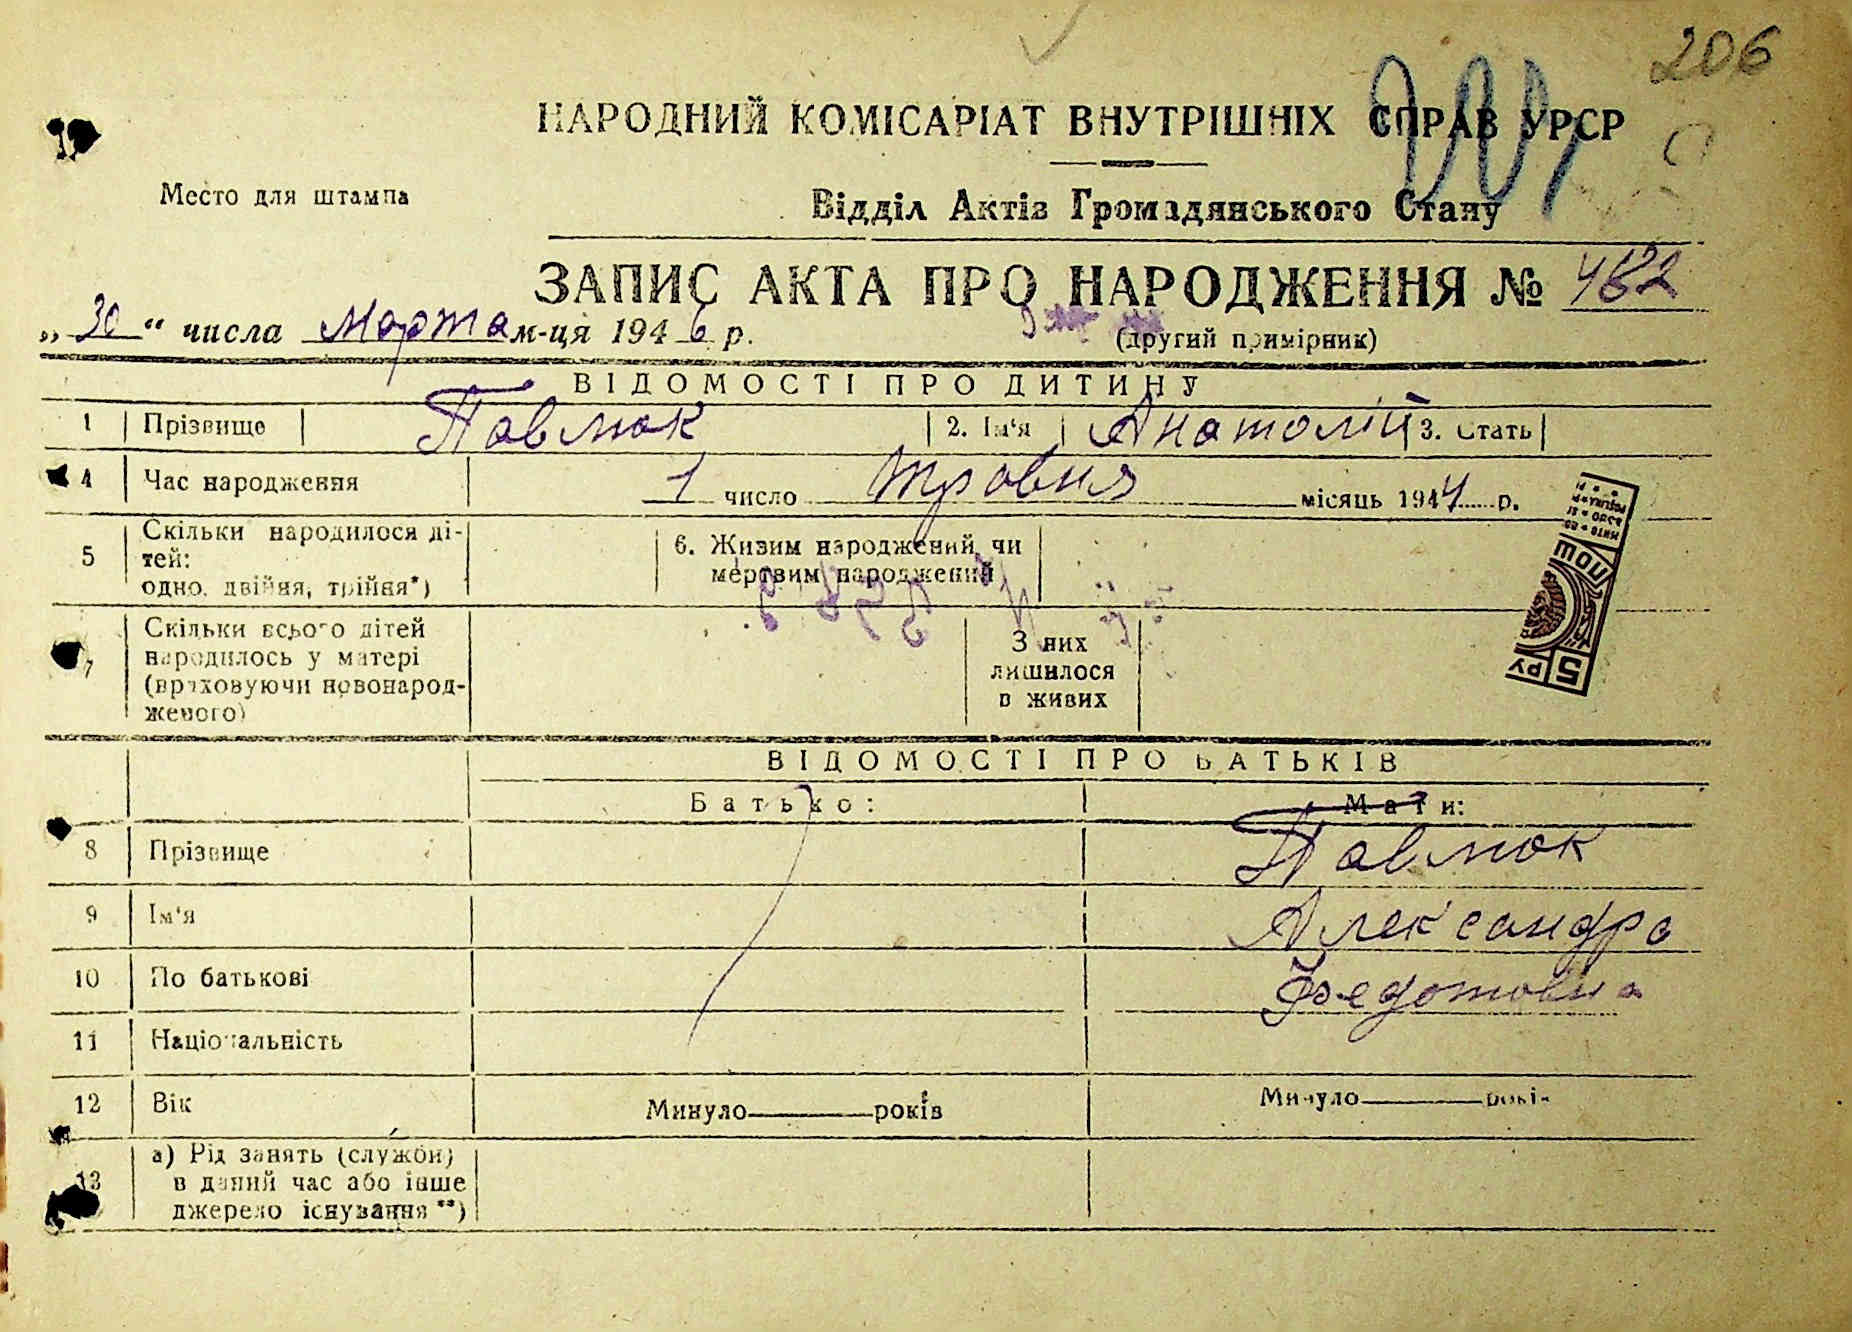 206
НАРОДНИЙ КОМІСАРІАТ ВНУТРІШНІХ СПРАВ УРСР
Место для штампа
Відділ Актів Громадянського Стану
ЗАПИС АКТА ПРО НАРОДЖЕННЯ № 482
„30“ числа Марта м-ця 1946 р.
(другий примірник)
ВІДОМОСТІ ПРО ДИТИНУ
1 Прізвище Павлюк 2. Ім‘я Анатолій 3. Стать
4 Час народження 1 число травня місяць 1944 р.
5 Скільки народилося ді-
тей:
одно, двійня, трійня*)
6. Живим народжений чи
мертвим народжений
7 Скільки всього дітей
народилось у матері
(враховуючи новонарод-
женого)
З них
лишилося
в живих
5 РУ
ВІДОМОСТІ ПРО БАТЬКІВ
Батько: Мати:
8 Прізвище Павлюк
9 Ім‘я Александра
10 По батькові Федотовна
11 Національність
12 Вік Минуло років Минуло років
13 а) Рід занять (служби)
в даний час або інше
джерело існування**)